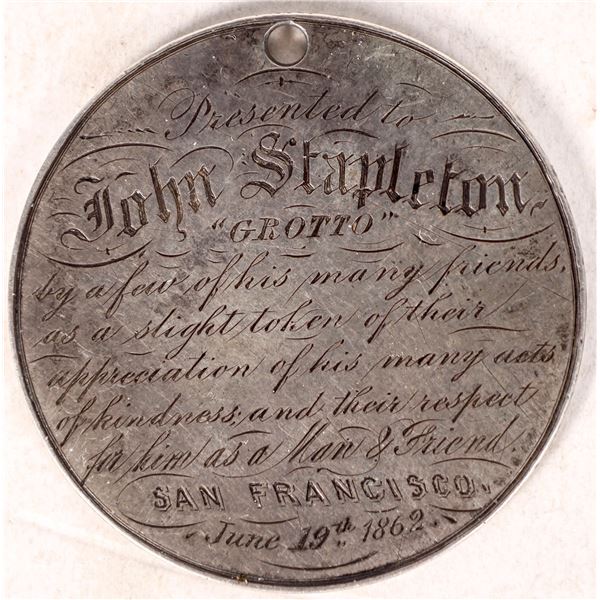 Presented to
John Stapleton,
"GROTTO"
by a few of his many friends,
as a slight token of their
appreciation of his many acts
of kindness; and their respect
for him as a Man & Friend
SAN FRANCISCO.
June 19th 1862.